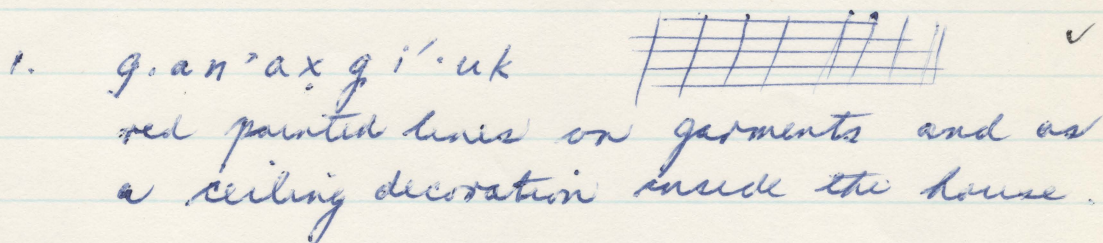 1. g·an'ax̣g̣i´·uk
red painted lines on garments and as
a ceiling decoration inside the house.